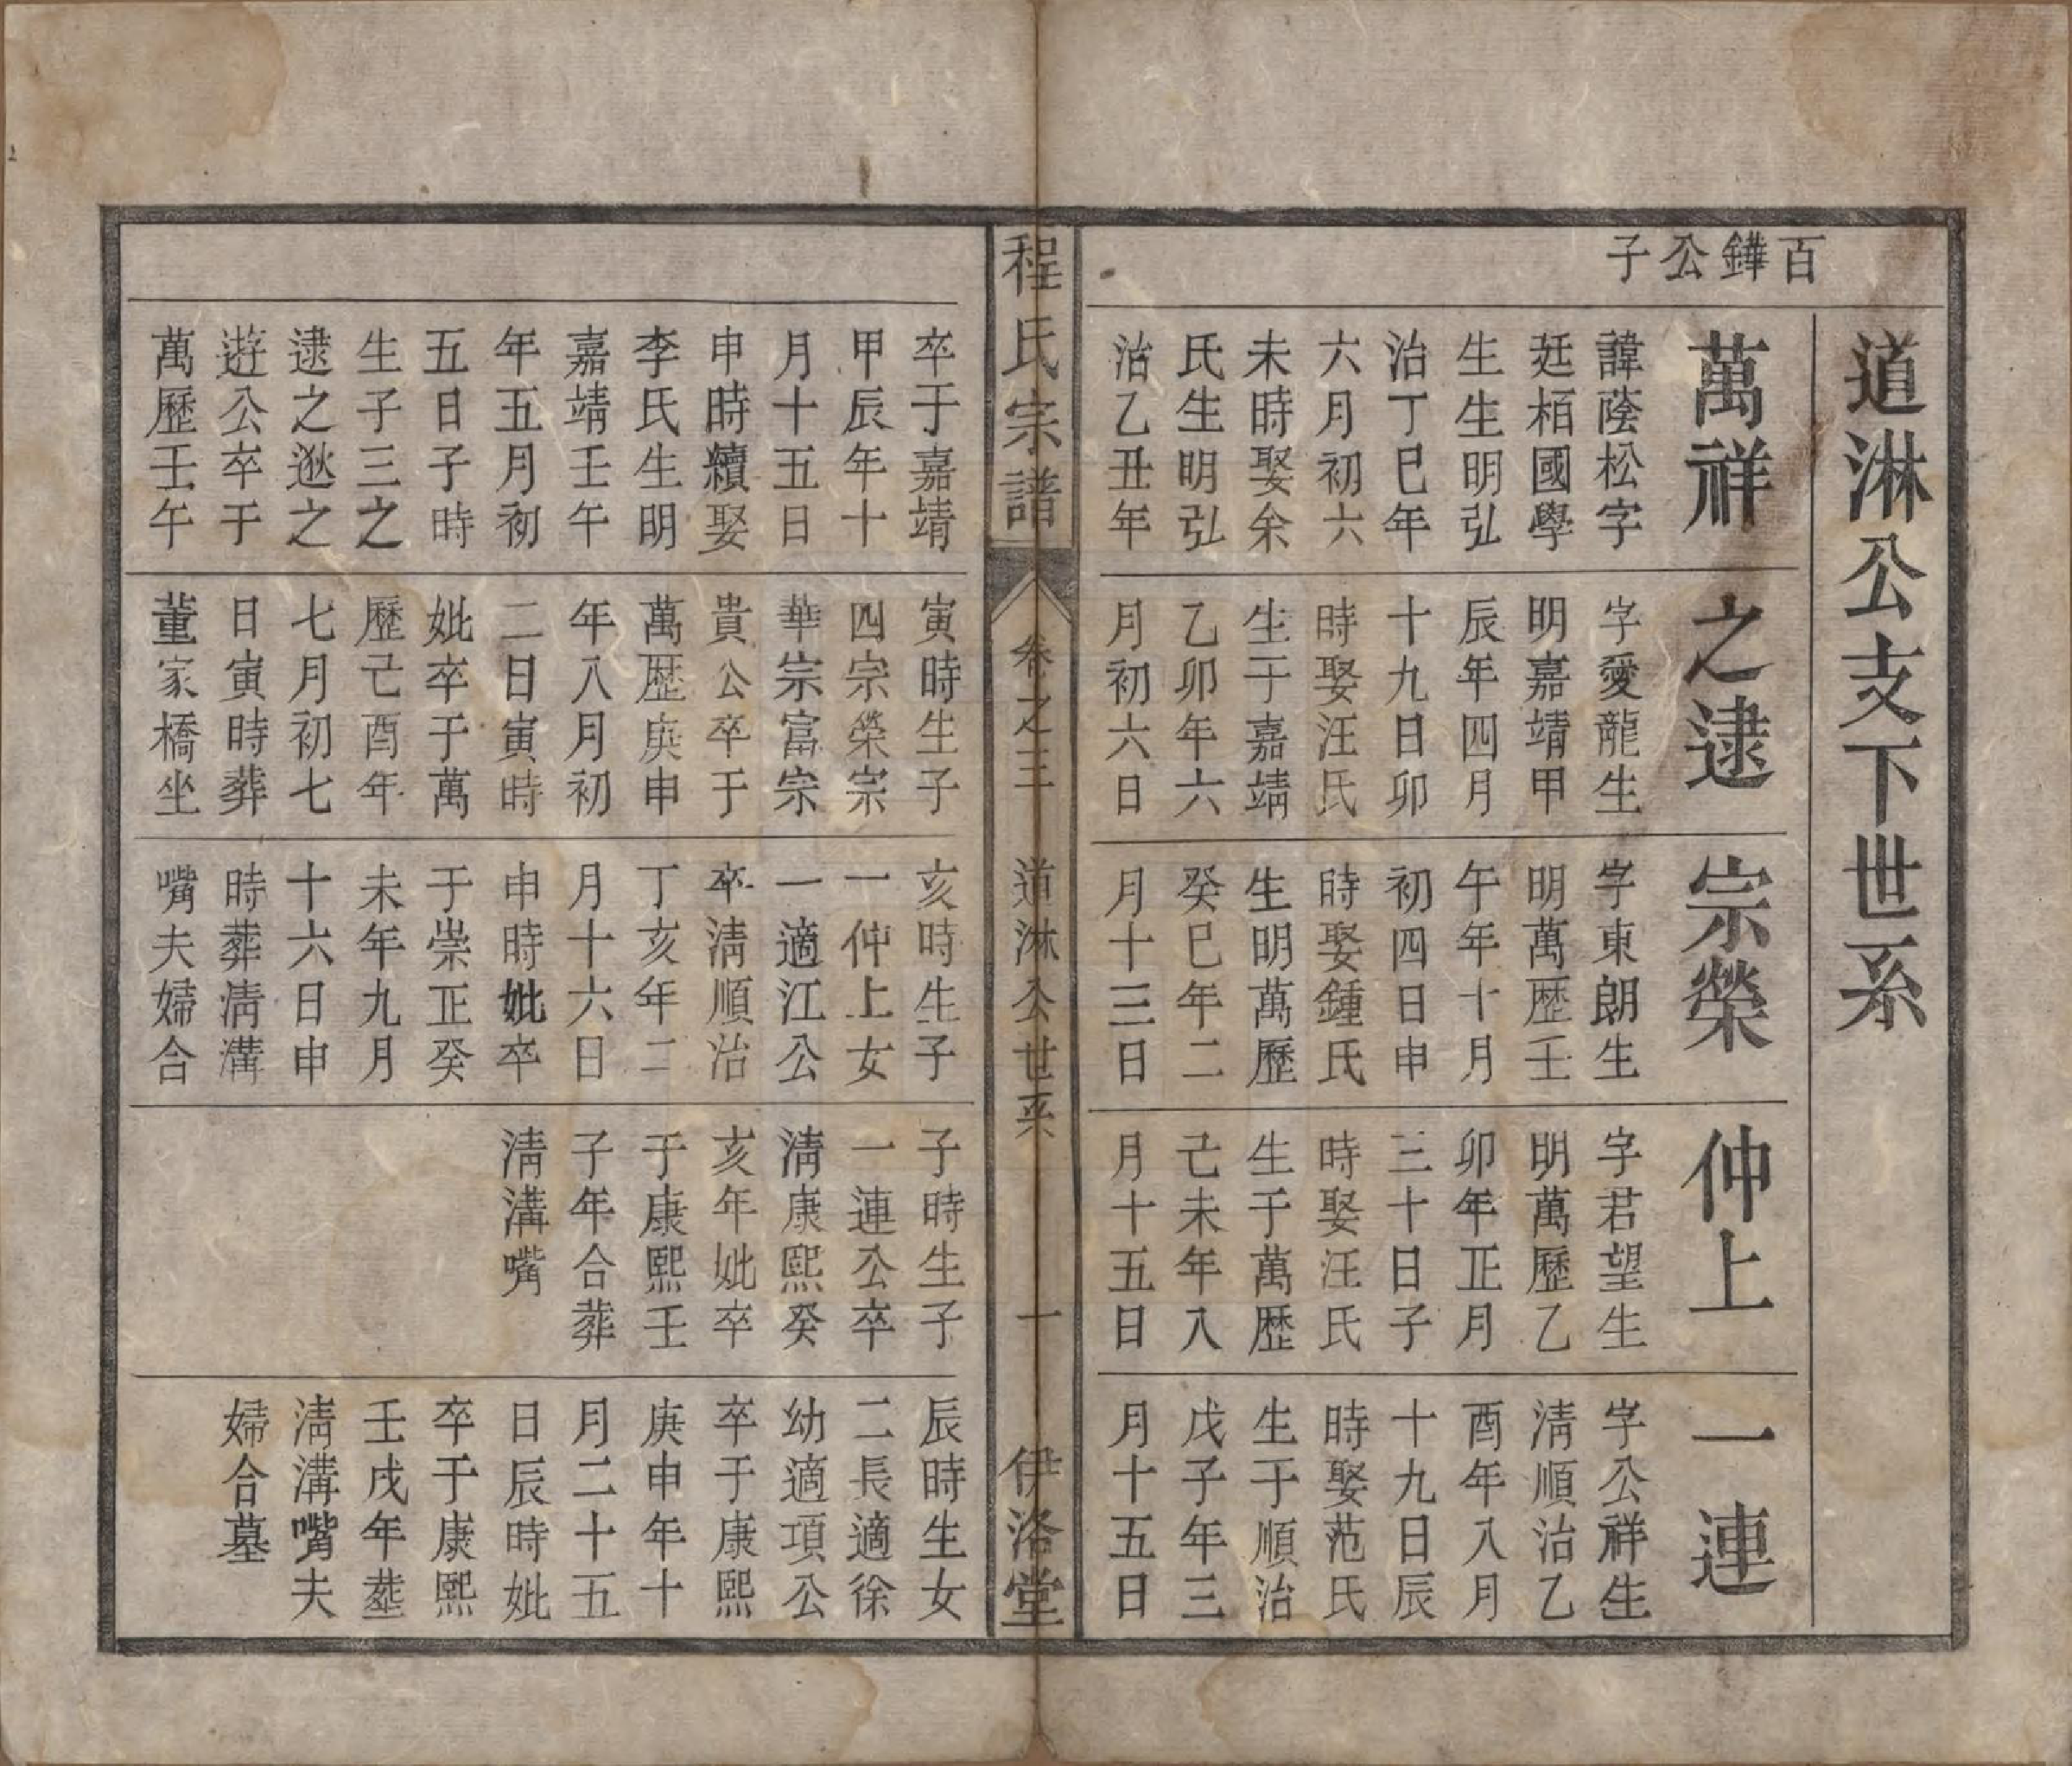 道淋公支下世系
百鏵公子
萬祥
諱蔭松字
廷栢國學
生生明弘
治丁巳年
六月初六
未時娶余
氏生明弘
治乙丑年
之逮
字愛龍生
明嘉靖甲
辰年四月
十九日卯
時娶汪氏
生于嘉靖
乙卯年六
月初六日
宗榮
字東朗生
明萬歷壬
午年十月
初四日申
時娶鍾氏
生明萬歷
癸巳年二
月十三日
仲上
字君望生
明萬歷乙
卯年正月
三十日子
時娶汪氏
生于萬歷
己未年八
月十五日
一連
字公祥生
淸順治乙
酉年八月
十九日辰
時娶范氏
生于順治
戊子年三
月十五日
程氏宗譜
卷之三
道淋公世系
十
伊洛堂
卒于嘉靖
甲辰年十
月十五日
申時續娶
李氏生明
嘉靖壬午
年五月初
五日子時
生子三之
逮之逖之
遊公卒于
萬歷壬午
寅時生子
四宗榮宗
華宗富宗
貴公卒于
萬歷庚申
年八月初
二日寅時
妣卒于萬
歷己酉年
七月初七
日寅時葬
董家橋坐
亥時生子
一仲上女
一適江公
卒淸順治
丁亥年二
月十六日
申時妣卒
于崇正癸
未年九月
十六日申
時葬淸溝
嘴夫婦合
子時生子
一連公卒
淸康熙癸
亥年妣卒
于康熙壬
子年合葬
淸溝嘴
辰時生女
二長適徐
幼適項公
卒于康熙
庚申年十
月二十五
日辰時妣
卒于康熙
壬戌年葬
淸溝嘴夫
婦合墓